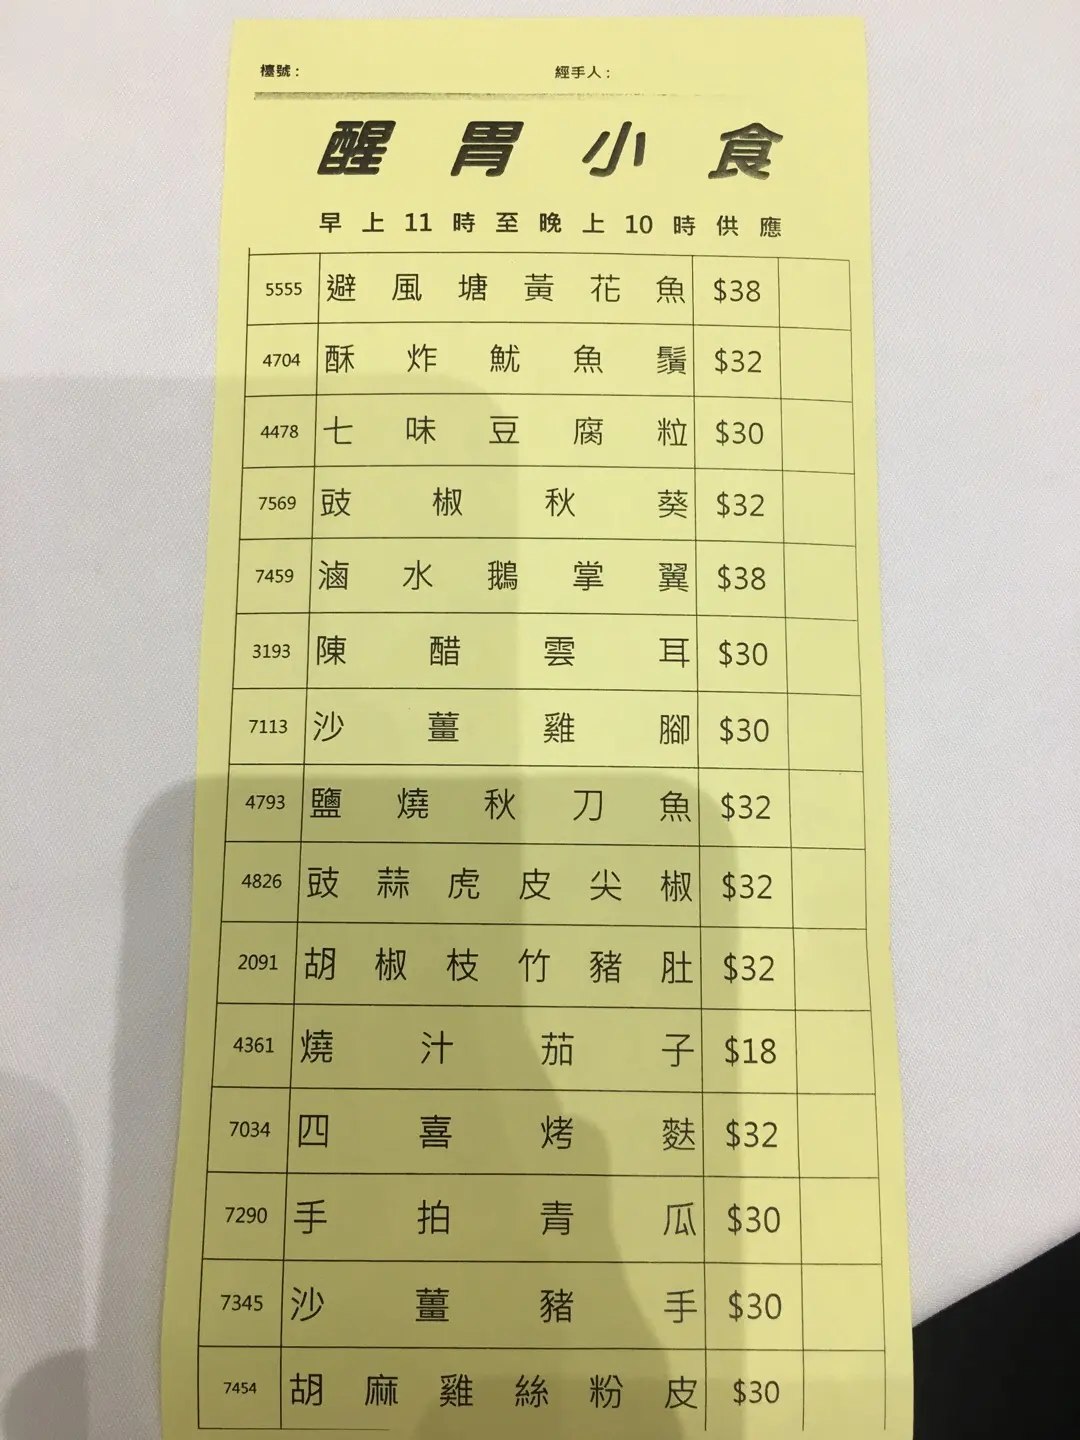 檯號： 經手人：
醒胃小食
早上11時至晚上10時供應
5555 避風塘黃花魚 $38
4704 酥炸魷魚鬚 $32
4478 七味豆腐粒 $30
7569 豉椒秋葵 $32
7459 滷水鵝掌翼 $38
3193 陳醋雲耳 $30
7113 沙薑雞腳 $30
4793 鹽燒秋刀魚 $32
4826 豉蒜虎皮尖椒 $32
2091 胡椒枝竹豬肚 $32
4361 燒汁茄子 $18
7034 四喜烤麩 $32
7290 手拍青瓜 $30
7345 沙薑豬手 $30
7454 胡麻雞絲粉皮 $30